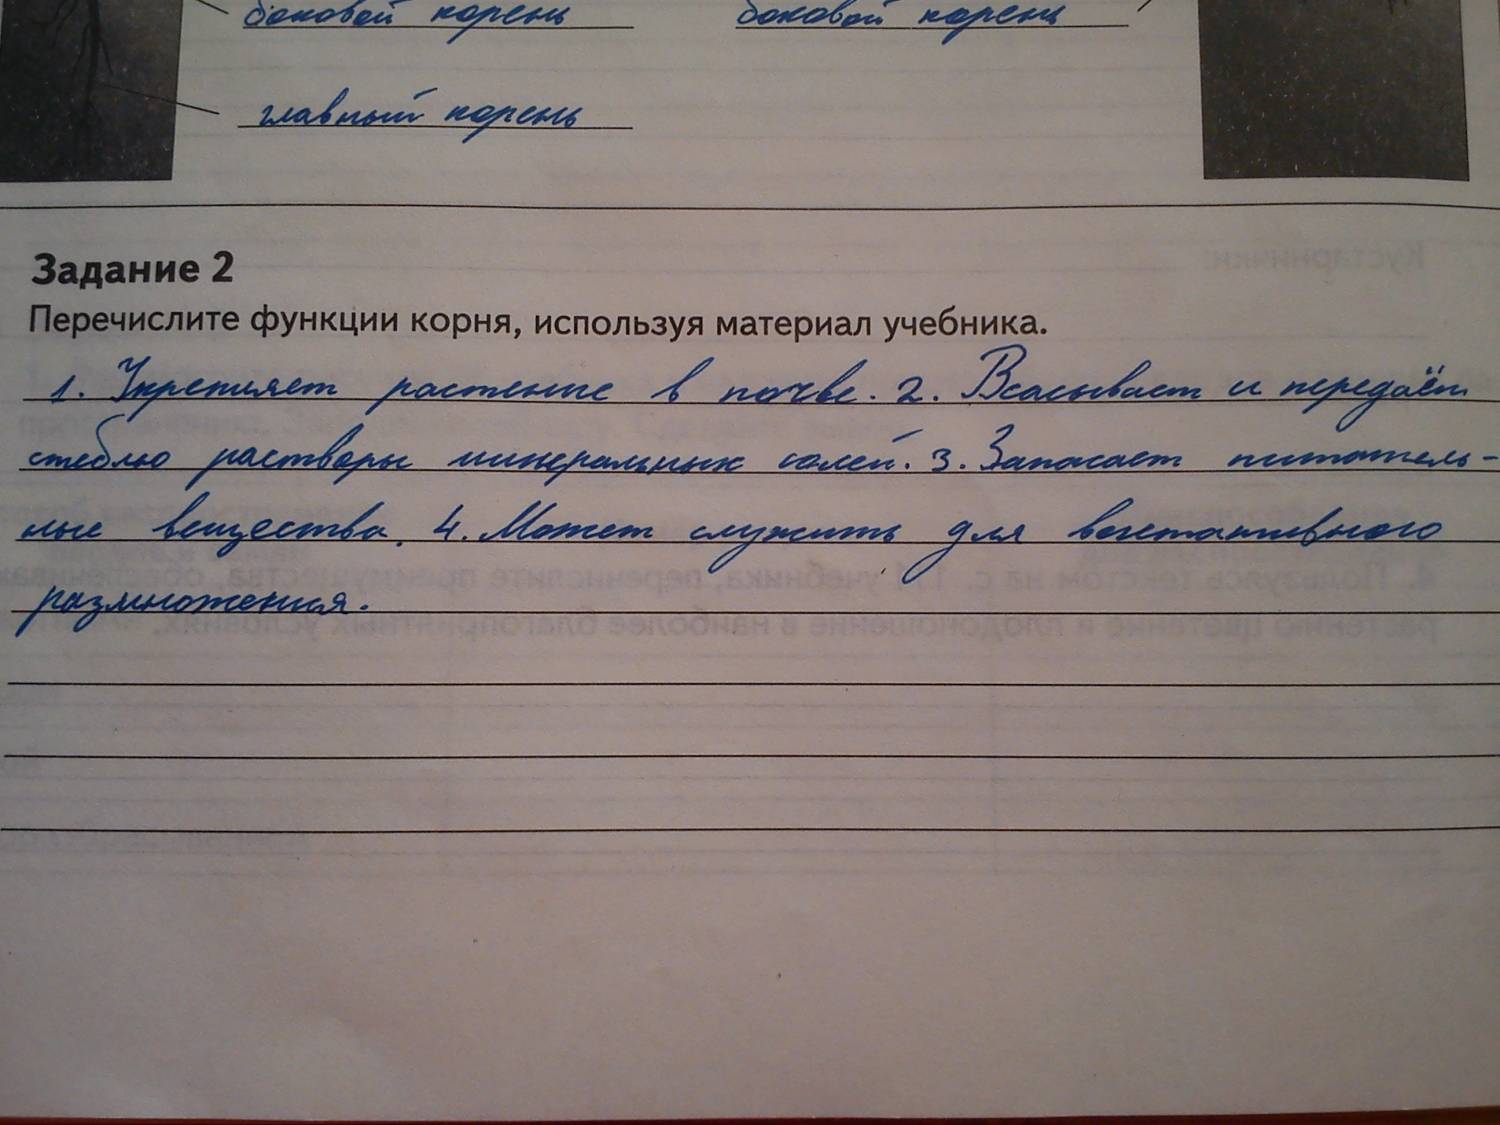 боковой корень боковой корень
главный корень
Задание 2
Перечислите функции корня, используя материал учебника.
1. Укрепляет растение в почве. 2. Всасывает и передаёт
стеблю растворы минеральных солей. 3. Запасает питатель-
ные вещества. 4. Может служить для вегетативного
размножения.